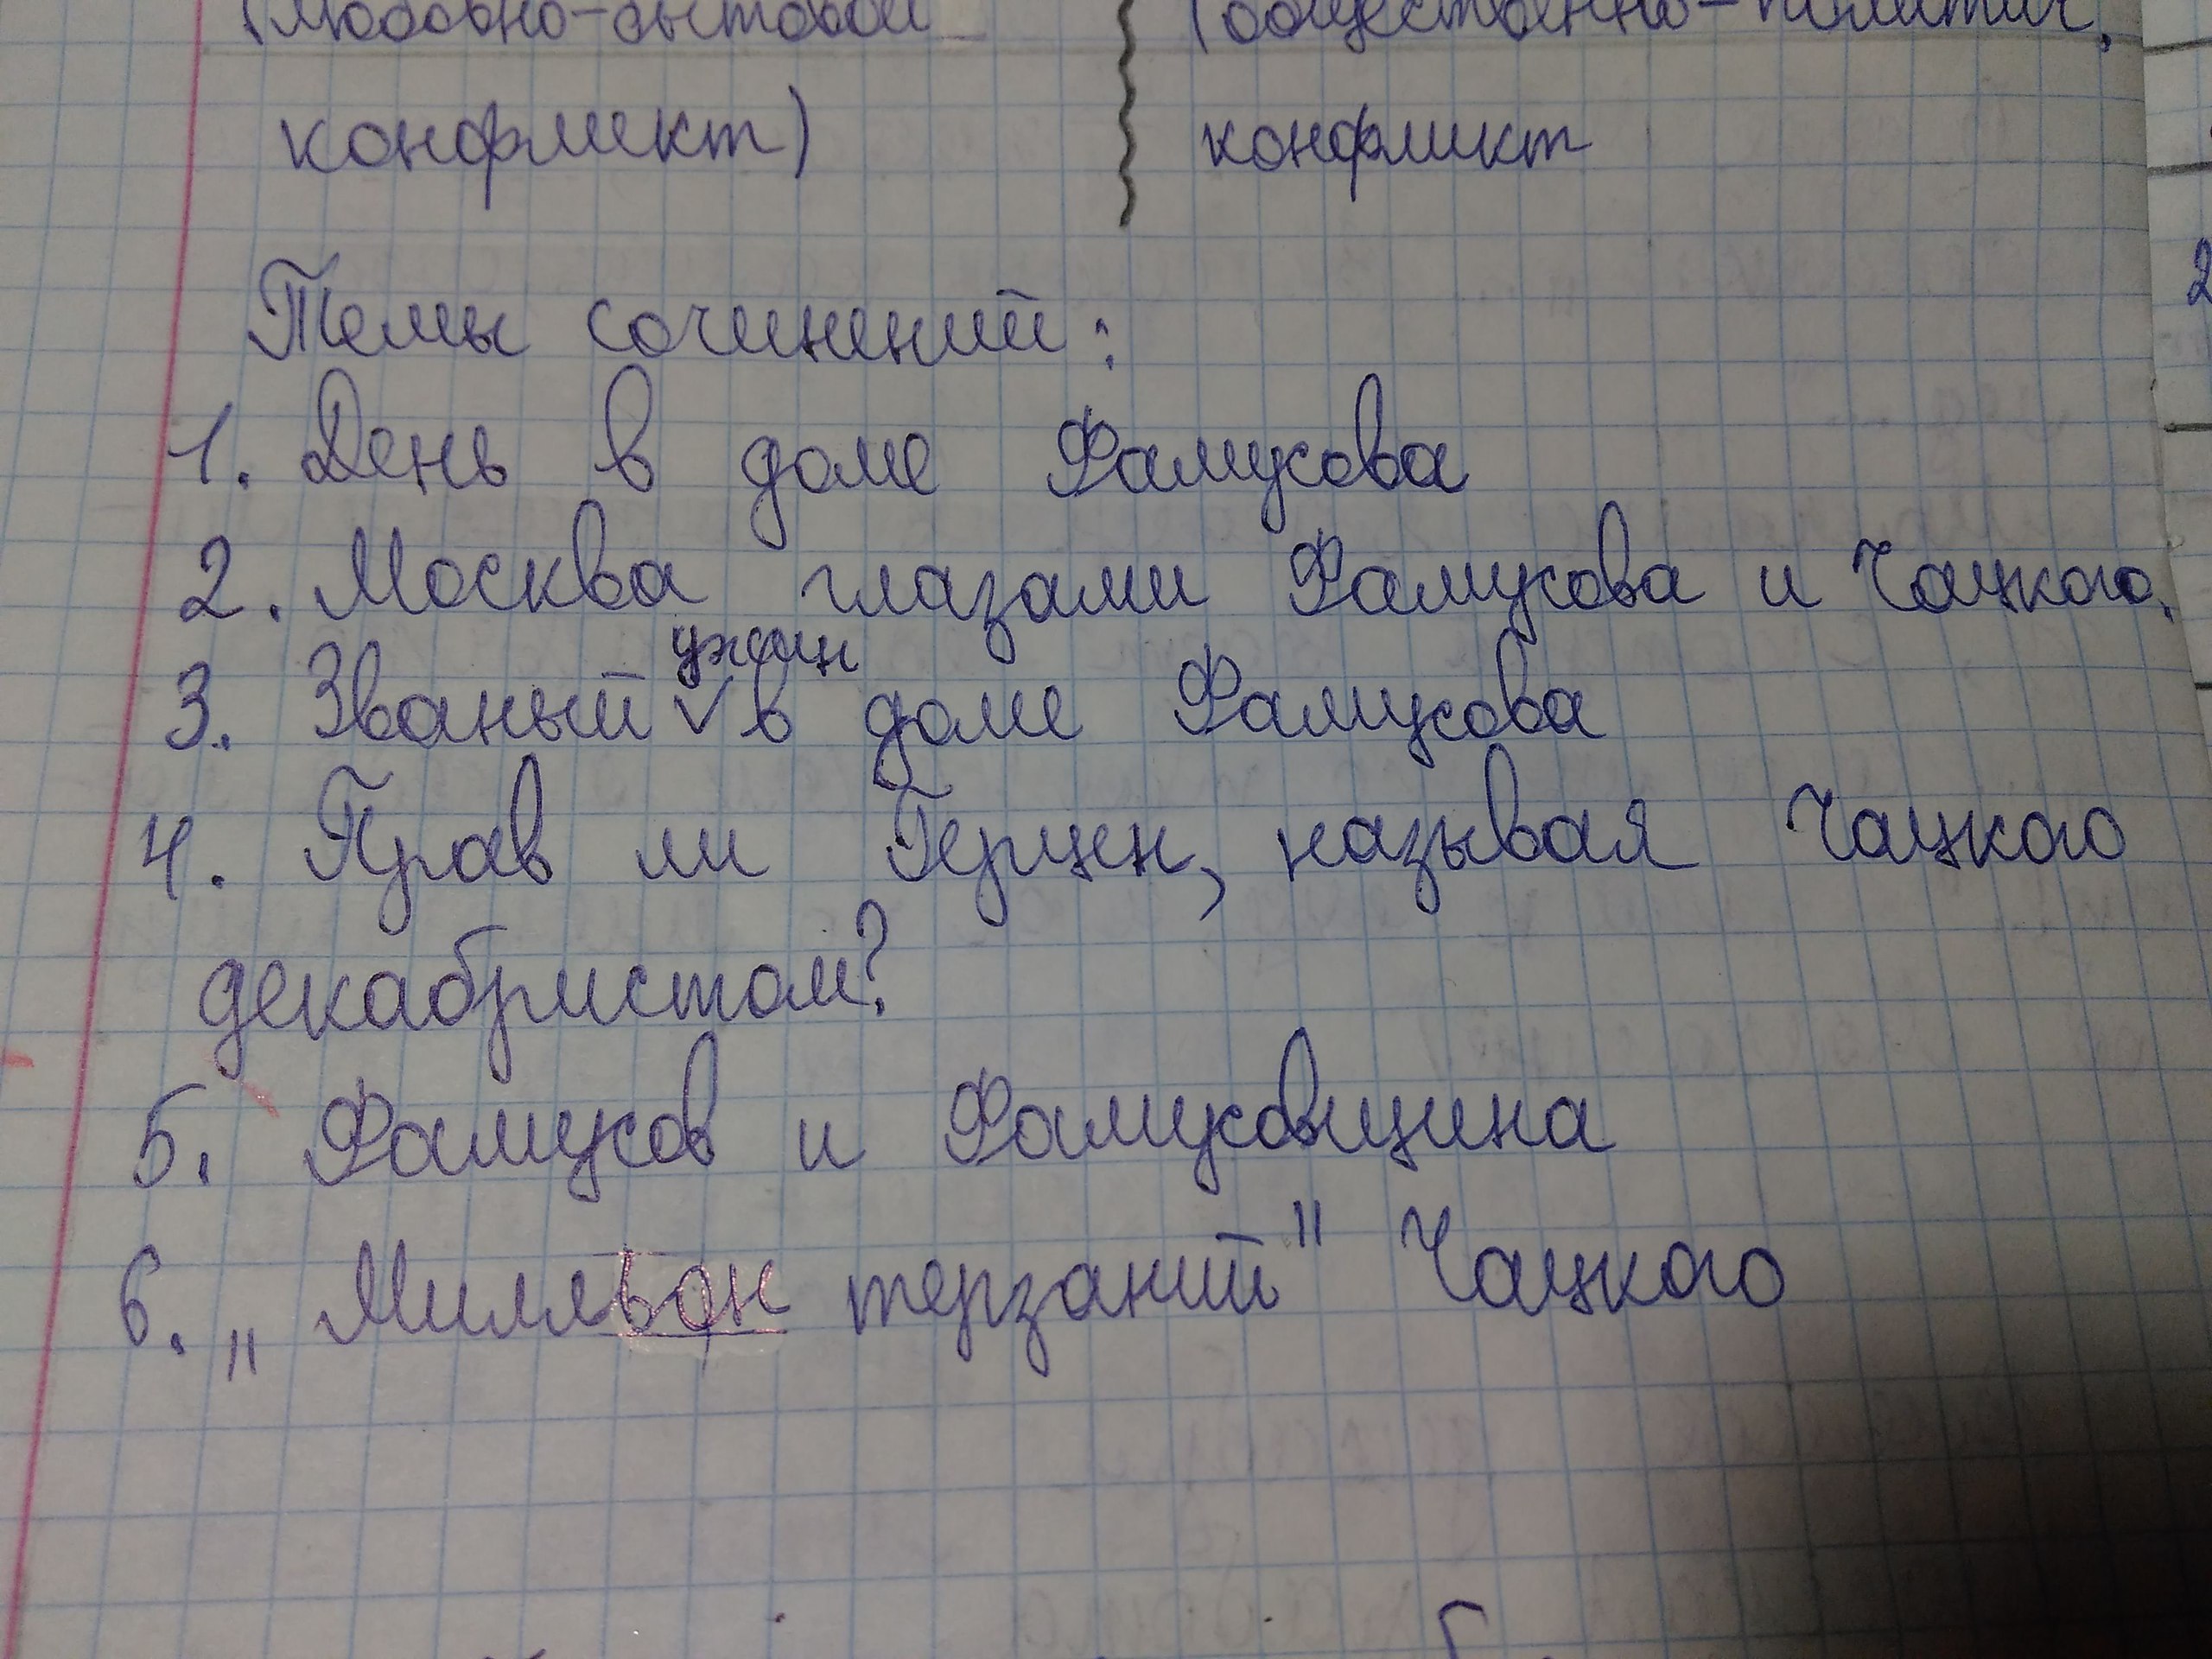 (любовно-бытовой (общественно-политич.
конфликт) конфликт
Темы сочинений:
1. День в доме Фамусова
2. Москва глазами Фамусова и Чацкого.
3. Званый ужин в доме Фамусова
4. Прав ли Герцен, называя Чацкого
декабристом?
5. Фамусов и Фамусовщина
6. „Мильльон терзаний" Чацкого
2